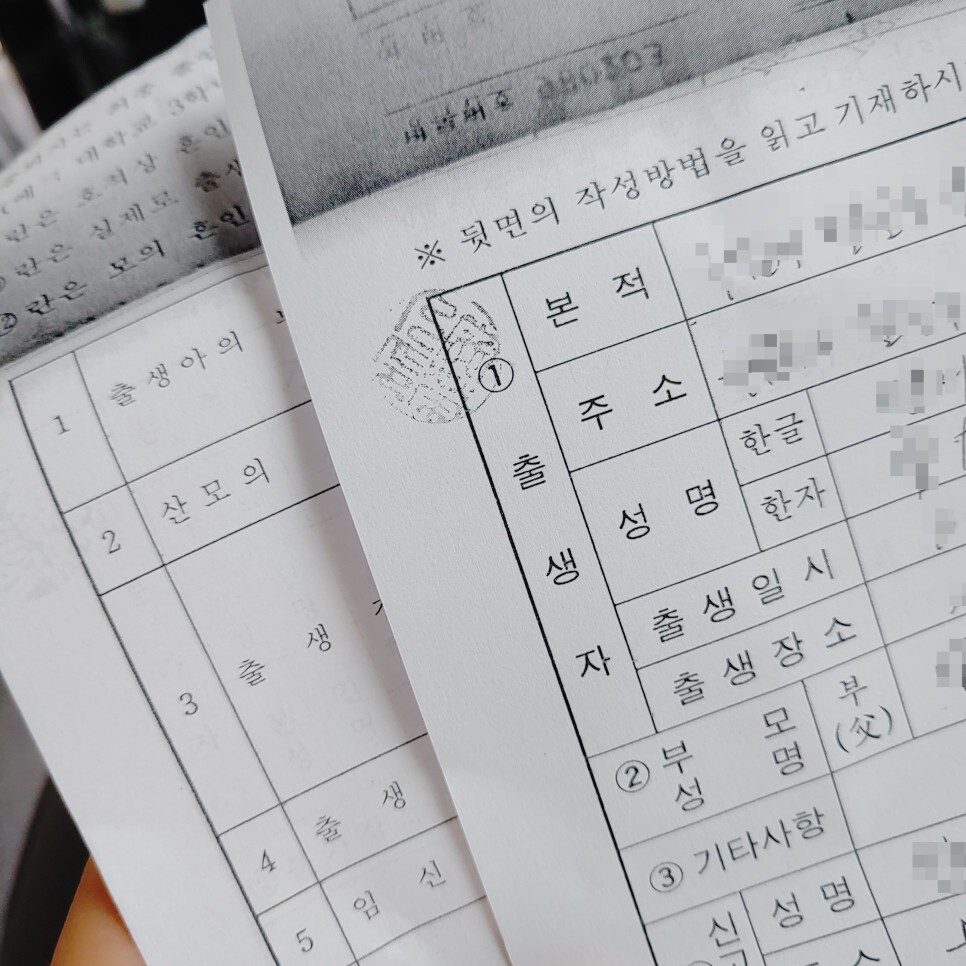 980203
※ 뒷면의 작성방법을 읽고 기재하시
①
출생자
본 적
주 소
성 명
한글
한자
출생일시
출생장소
② 부 모
성 명
부
(父)
③ 기타사항
성 명
대학교 3학
란은 호적상 혼인
란은 실제로 출생
② 란은 모의 혼인
1 출생아의
2 산모의
3 출 생
4 출 생
5 임 신